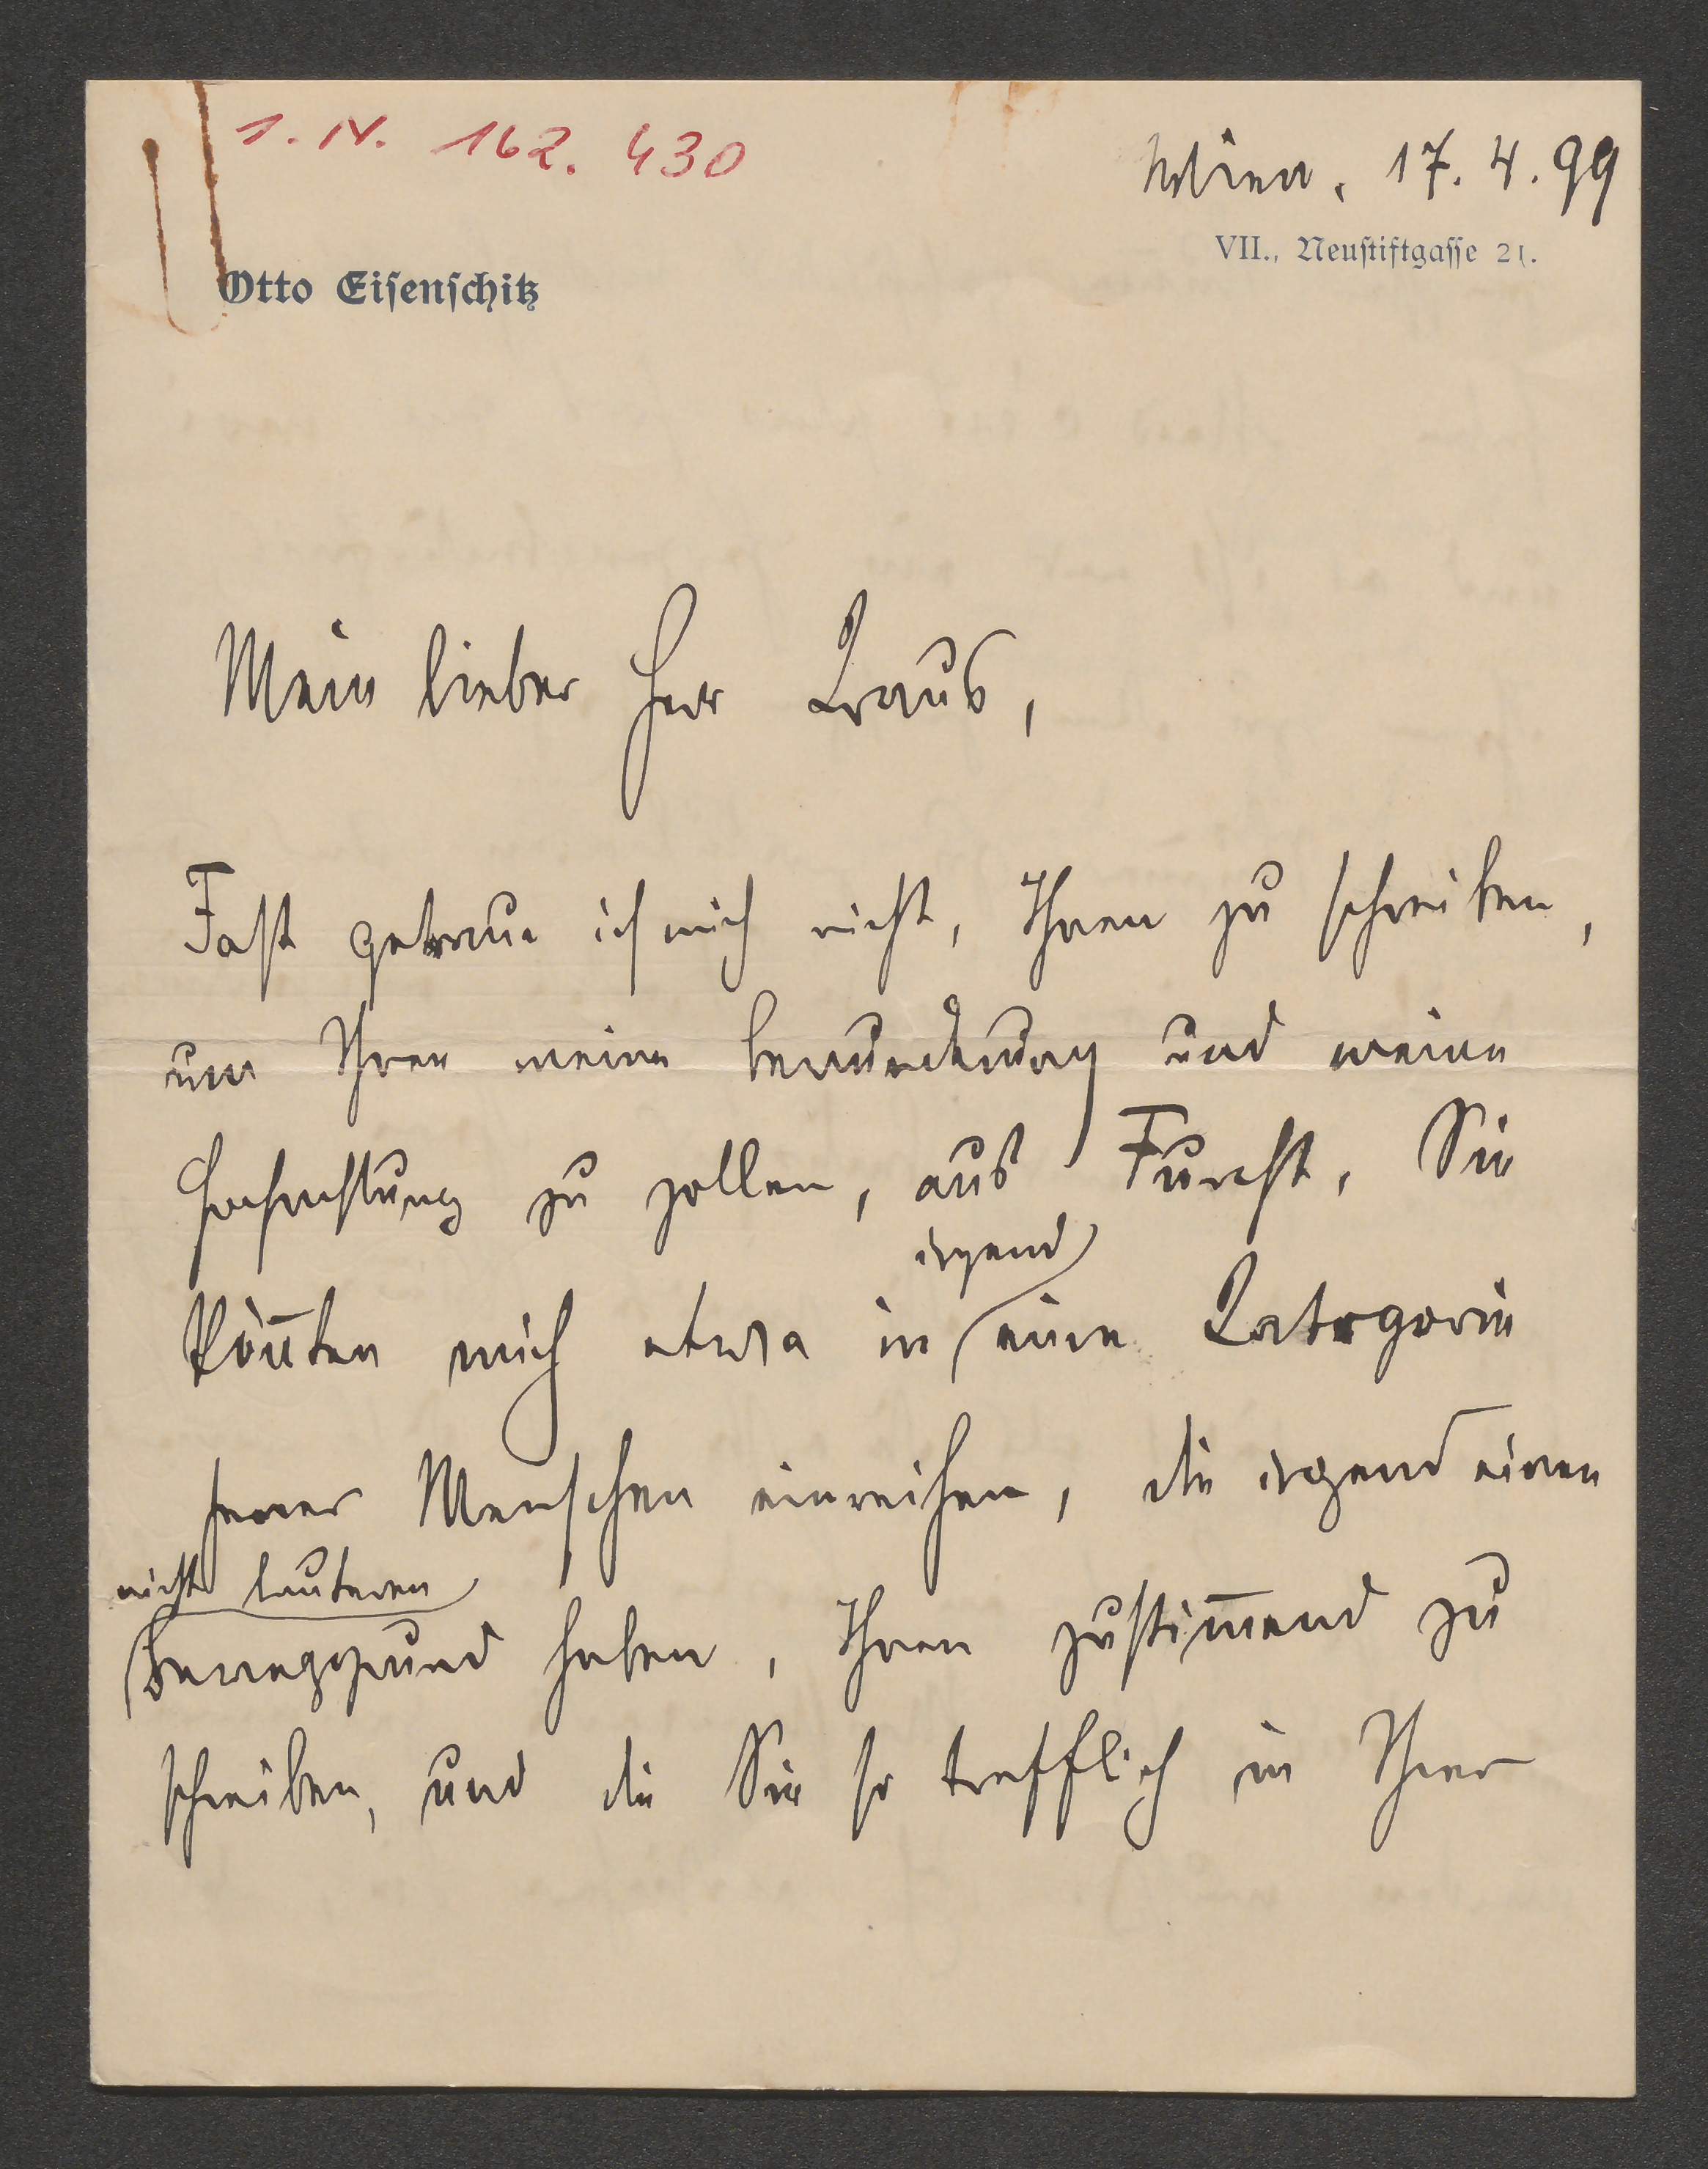 I. N. 162.430
Wien, 17.4.99
VII., Neustiftgasse 21.
Otto Eisenschitz
Mein lieber Herr Kraus,
Fast getraue ich mich nicht, Ihnen zu schreiben,
um Ihnen meine Bewunderung und meine
Hochachtung zu zollen, aus Furcht, Sie
irgend
kön̄ten mich etwa in eine Kategorie
jener Menschen einreihen, die irgend einen
nicht lauteren
Beweggrund haben, Ihnen zustim̄end zu
schreiben, und die Sie so trefflich in Ihrer